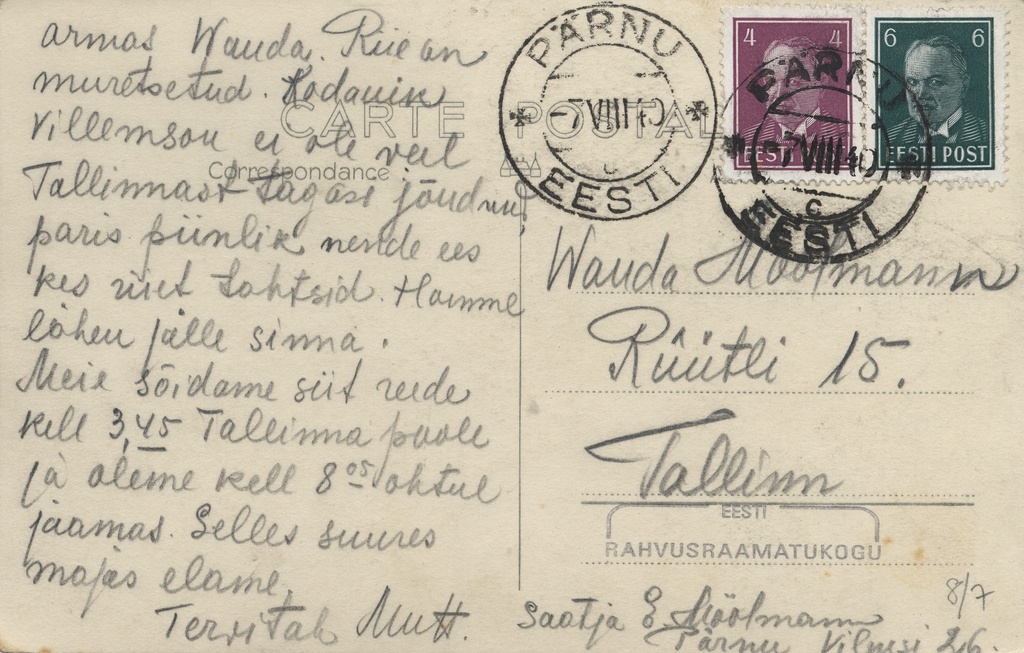 armas Wanda. Riie on
muretsetud. Kodanik
Villemson ei ole veel
Tallinnast tagasi jõudnud
päris piinlik nende ees
kes riiet tahtsid. Homme
lähen jälle sinna.
Meie sõidame siit reede
kell 3,45 Tallinna poole
ja oleme kell 8 05 õhtul
jaamas. Selles suures
majas elame.
Tervitab Mutt.
CARTE POSTALE
Correspondance
PÄRNU
-7 VIII 40
C
EESTI
4 4
EESTI
6 6
EESTI POST
PÄRNU
-7 VIII 40
C
EESTI
Wanda Möölmann
Rüütli 15.
Tallinn
EESTI
RAHVUSRAAMATUKOGU
8/7
Saatja E. Möölmann
Pärnu Vilmsi 26.